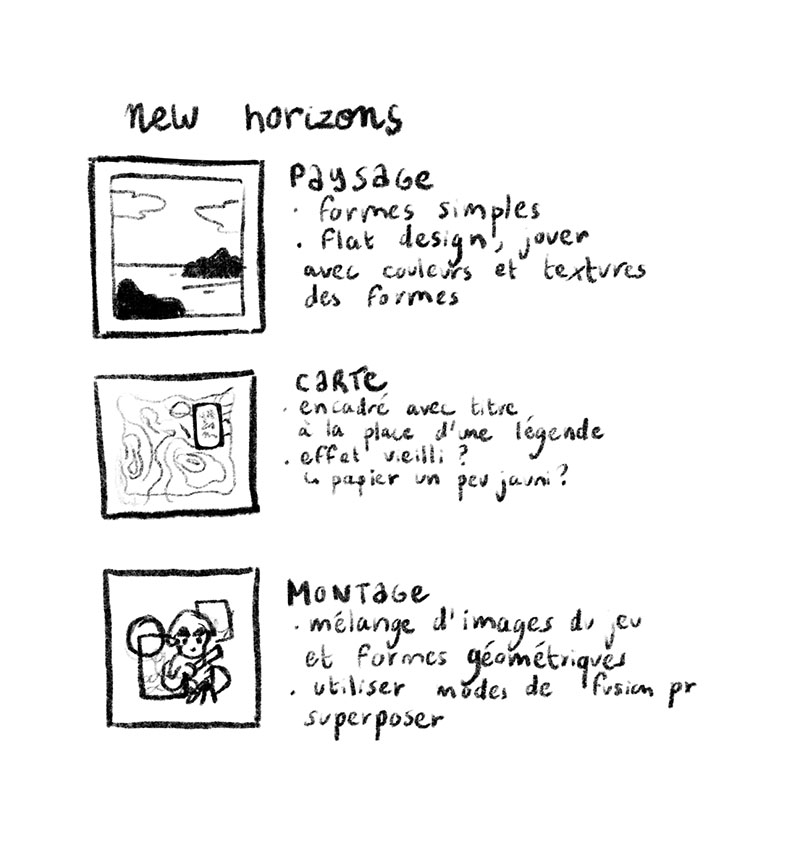 new horizons
PaysaGe
· formes simples
· flat design, jouer
avec couleurs et textures
des formes
CaRTe
· encadré avec titre
à la place d'une légende
· effet vieilli ?
↳ papier un peu jauni ?
MoNTaGe
· mélange d'images du jeu
et formes géométriques
· utiliser modes de fusion pr
superposer